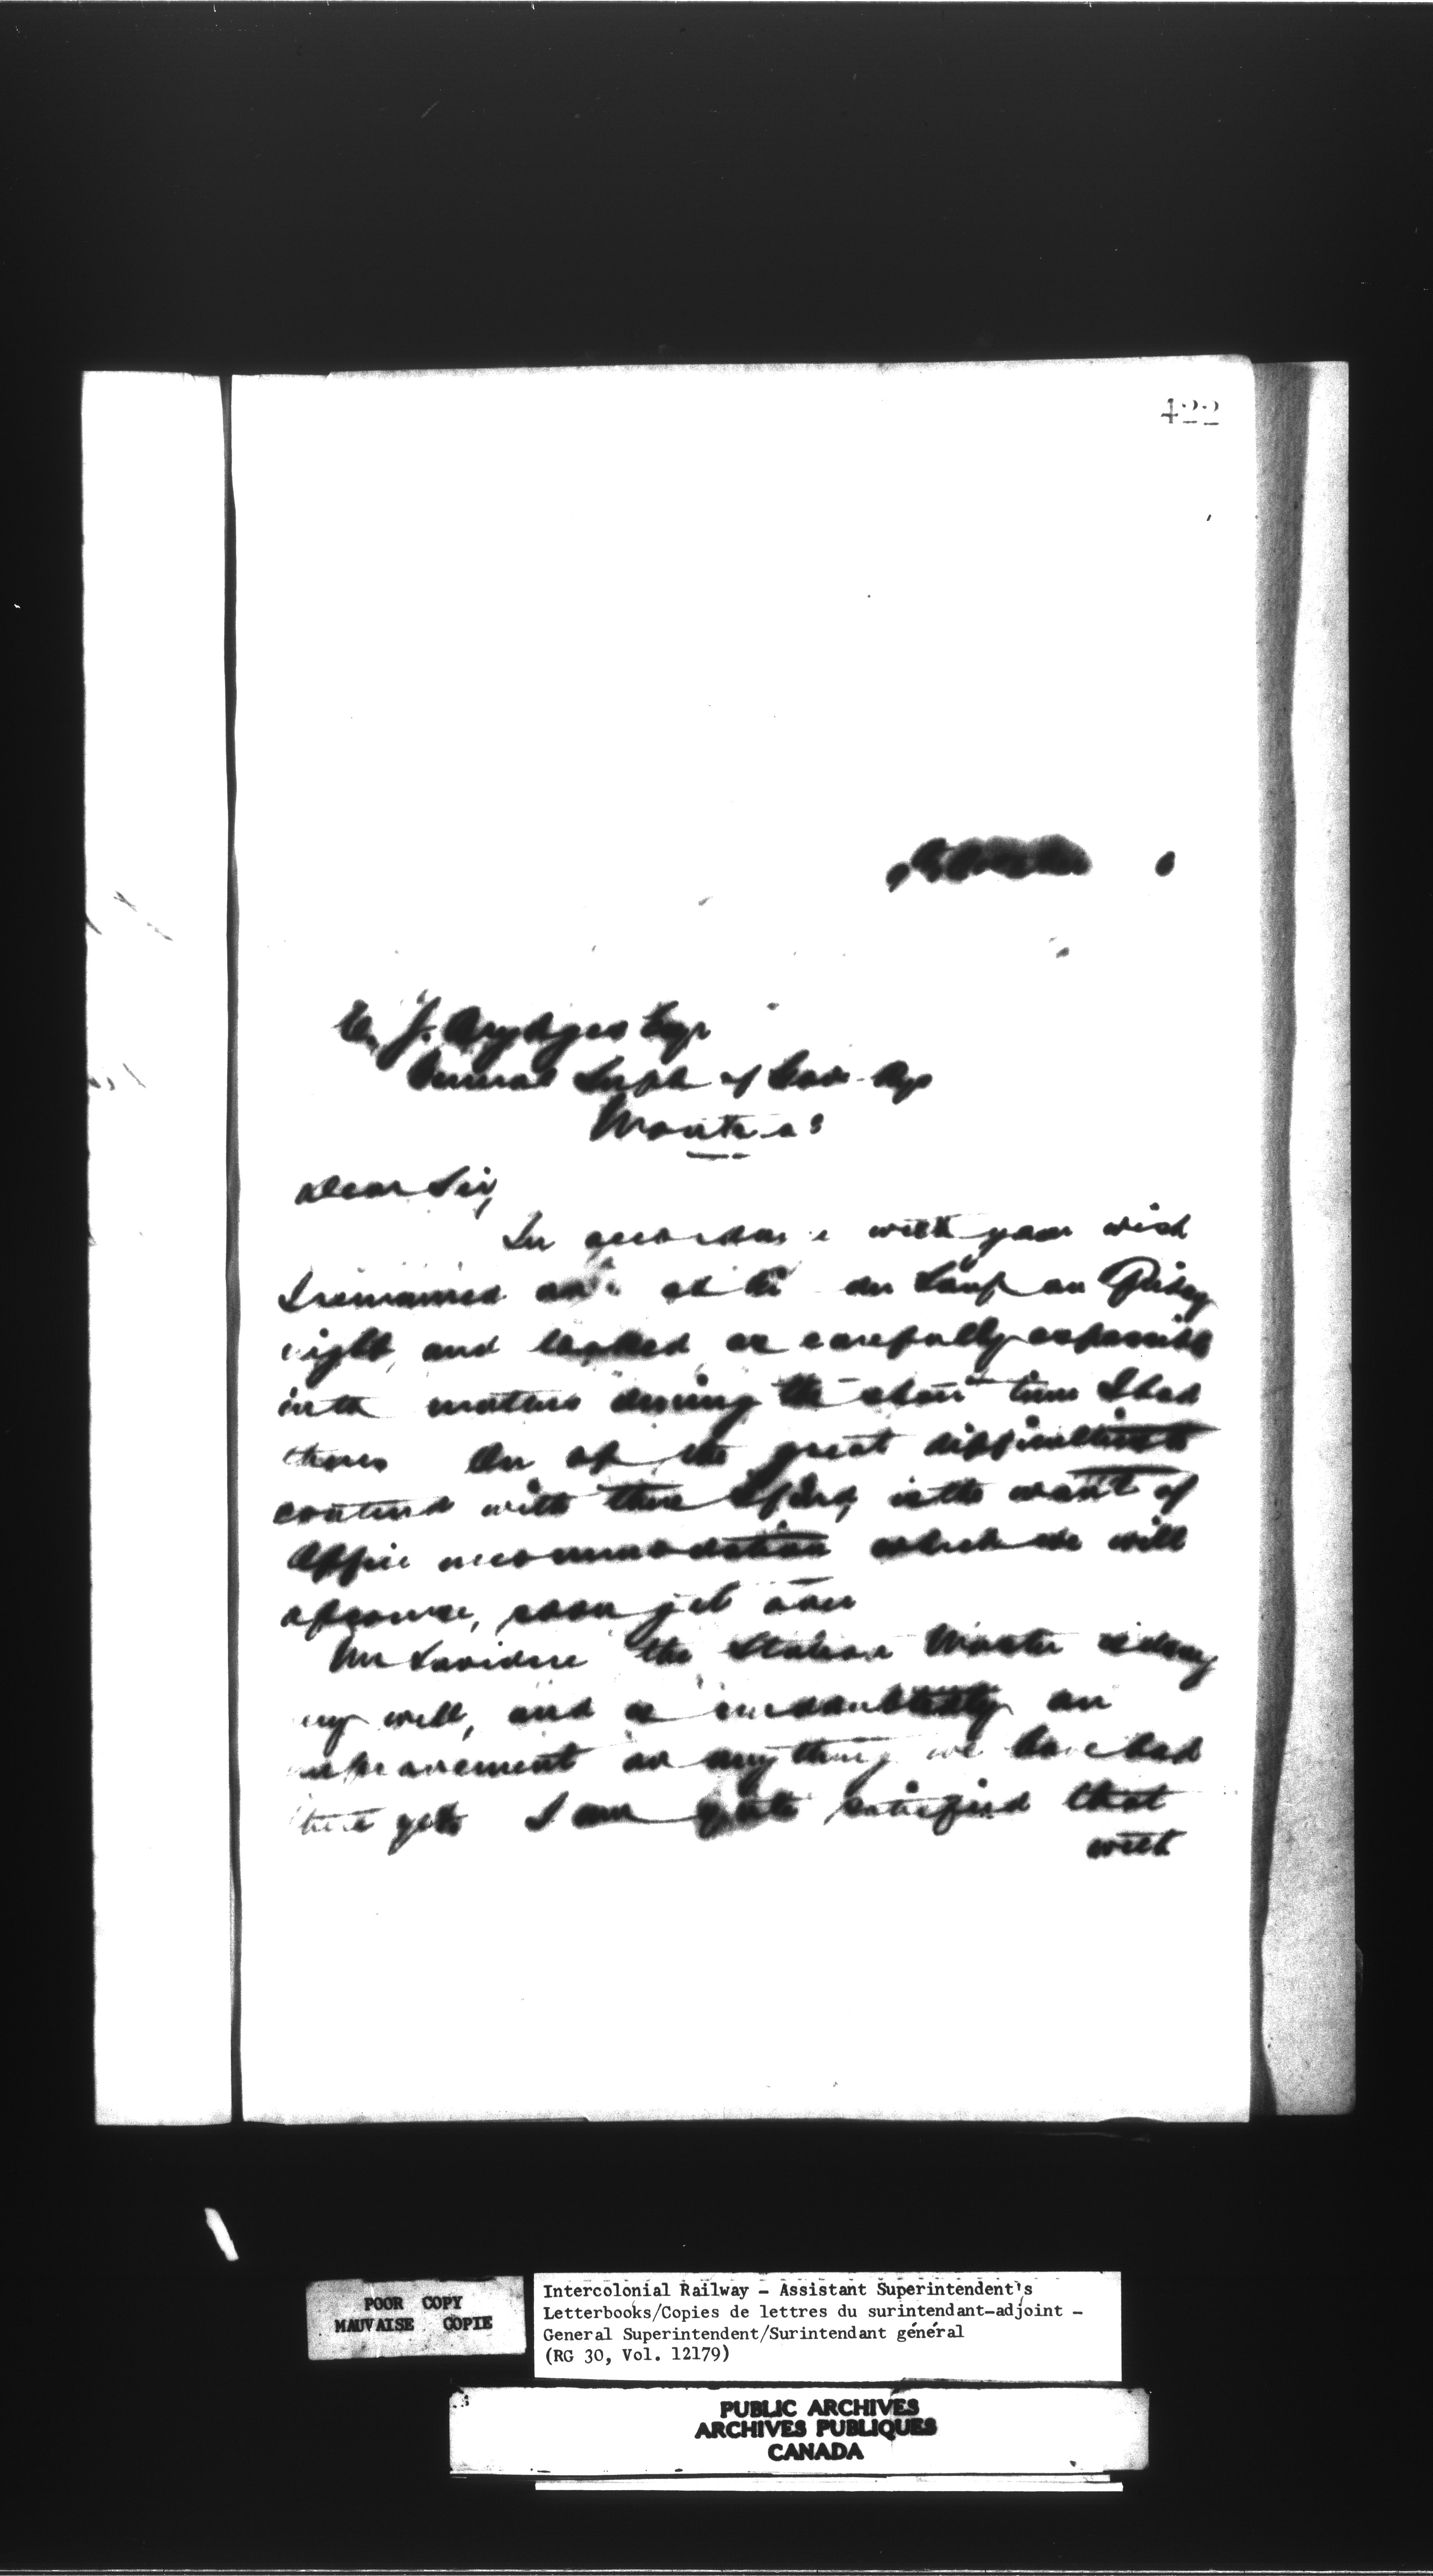 422
C. J. Brydges Esqr
General Supt of Gov. Rys
Montreal
Dear Sir,
In accordance with your wish
I remained over at Riv du Loup on Friday
night and looked as carefully as possible
into matters during the short time I had
there One of the great difficulties to
contend with there I find, is the want of
Office accommodation which we will
of course, soon get over
Mr the Station Master is doing
very well, and is undoubtedly an
improvement on anything we have had
there yet. I am quite satisfied that
with
POOR COPY
MAUVAISE COPIE
Intercolonial Railway - Assistant Superintendent's
Letterbooks/Copies de lettres du surintendant-adjoint -
General Superintendent/Surintendant général
(RG 30, Vol. 12179)
PUBLIC ARCHIVES
ARCHIVES PUBLIQUES
CANADA